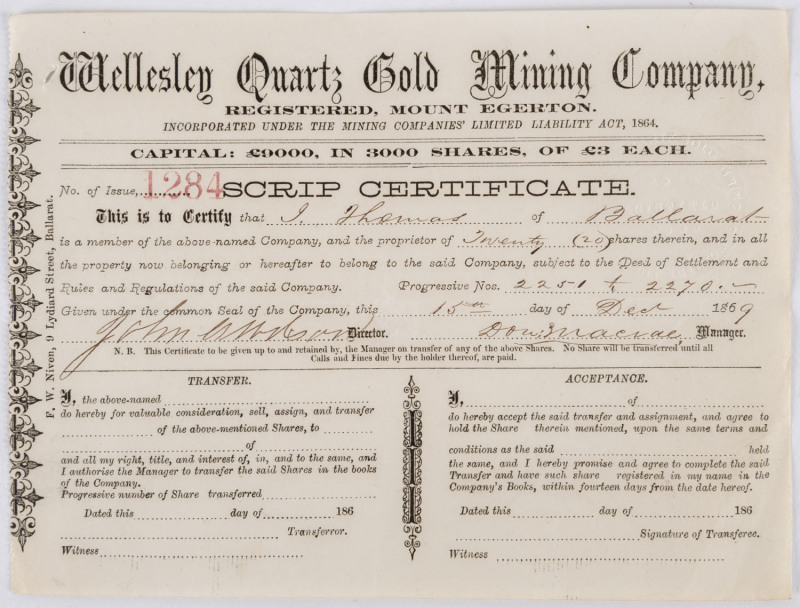 Wellesley Quartz Gold Mining Company,
REGISTERED, MOUNT EGERTON.
INCORPORATED UNDER THE MINING COMPANIES' LIMITED LIABILITY ACT, 1864.
CAPITAL: £9000, IN 3000 SHARES, OF £3 EACH.
No. of Issue, 1284 SCRIP CERTIFICATE.
This is to Certify that J. Thomas of Ballarat
is a member of the above-named Company, and the proprietor of Twenty (20) shares therein, and in all
the property now belonging or hereafter to belong to the said Company, subject to the Deed of Settlement and
Rules and Regulations of the said Company. Progressive Nos. 2251 to 2270.
Given under the common Seal of the Company, this 15th day of Dec 1869
John Director. Manager.
N. B. This Certificate to be given up to and retained by, the Manager on transfer of any of the above Shares. No Share will be transferred until all
Calls and Fines due by the holder thereof, are paid.
F. W. Niven, 9 Lydiard Street, Ballarat.
TRANSFER.
I, the above-named
do hereby for valuable consideration, sell, assign, and transfer
of the above-mentioned Shares, to
of
and all my right, title, and interest of, in, and to the same, and
I authorise the Manager to transfer the said Shares in the books
of the Company.
Progressive number of Share transferred
Dated this day of 186
Transferror.
Witness
ACCEPTANCE.
I, of
do hereby accept the said transfer and assignment, and agree to
hold the Share therein mentioned, upon the same terms and
conditions as the said held
the same, and I hereby promise and agree to complete the said
Transfer and have such share registered in my name in the
Company's Books, within fourteen days from the date hereof.
Dated this day of 186
Signature of Transferee.
Witness